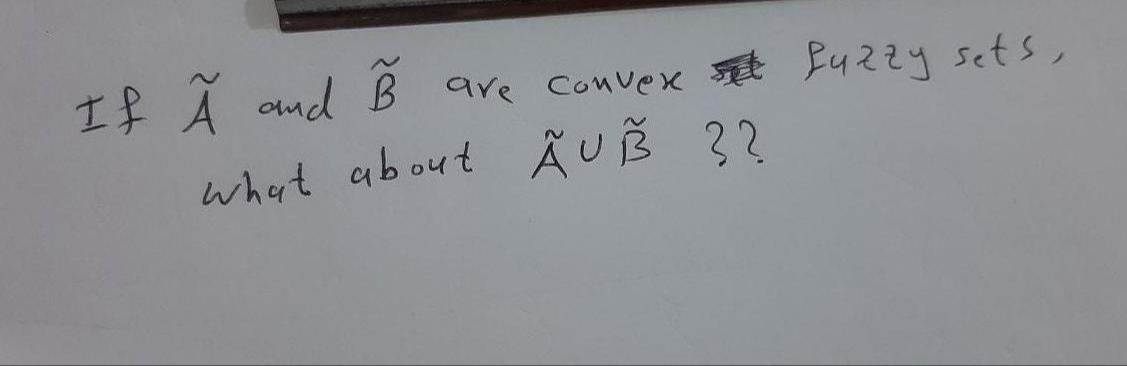 If Ã and B̃ are convex fuzzy sets,
what about Ã ∪ B̃ ??